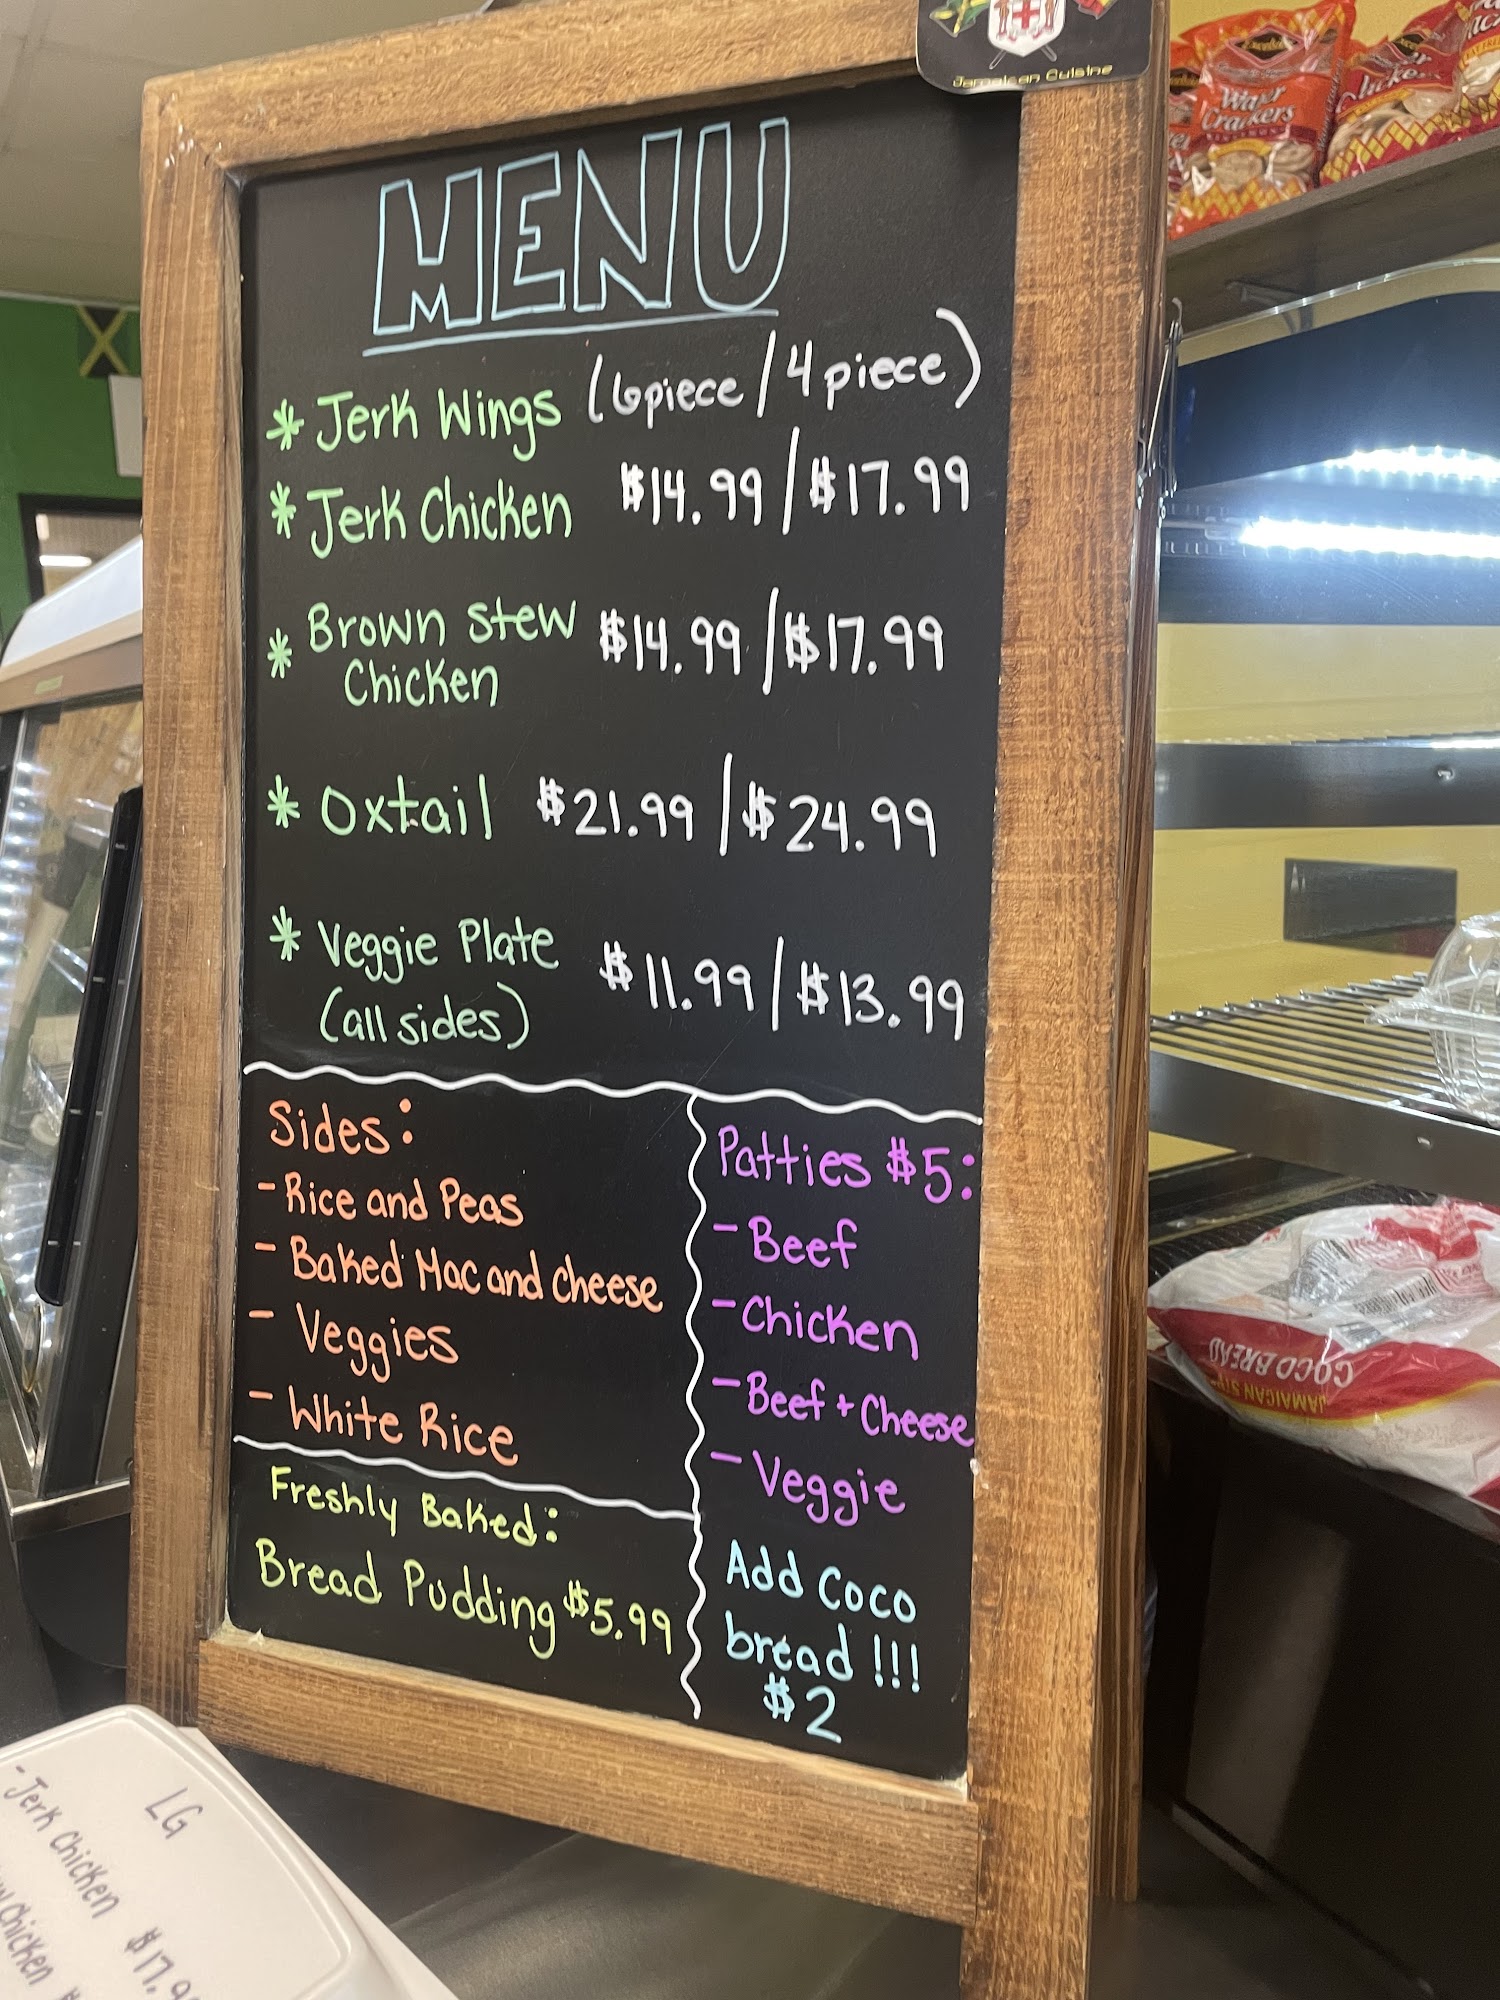 Jamaican Cuisine
Water
Crackers
MENU
* Jerk Wings (6piece/4piece)
* Jerk Chicken $14.99/$17.99
* Brown Stew
Chicken $14.99/$17.99
* Oxtail $21.99/$24.99
* Veggie Plate
(all sides) $11.99/$13.99
Sides:
- Rice and Peas
- Baked Mac and Cheese
- Veggies
- White Rice
Freshly Baked:
Bread Pudding $5.99
Patties $5:
- Beef
- Chicken
- Beef + Cheese
- Veggie
Add Coco
bread!!!
$2
COCO BREAD
LG
- Jerk Chicken
Chicken